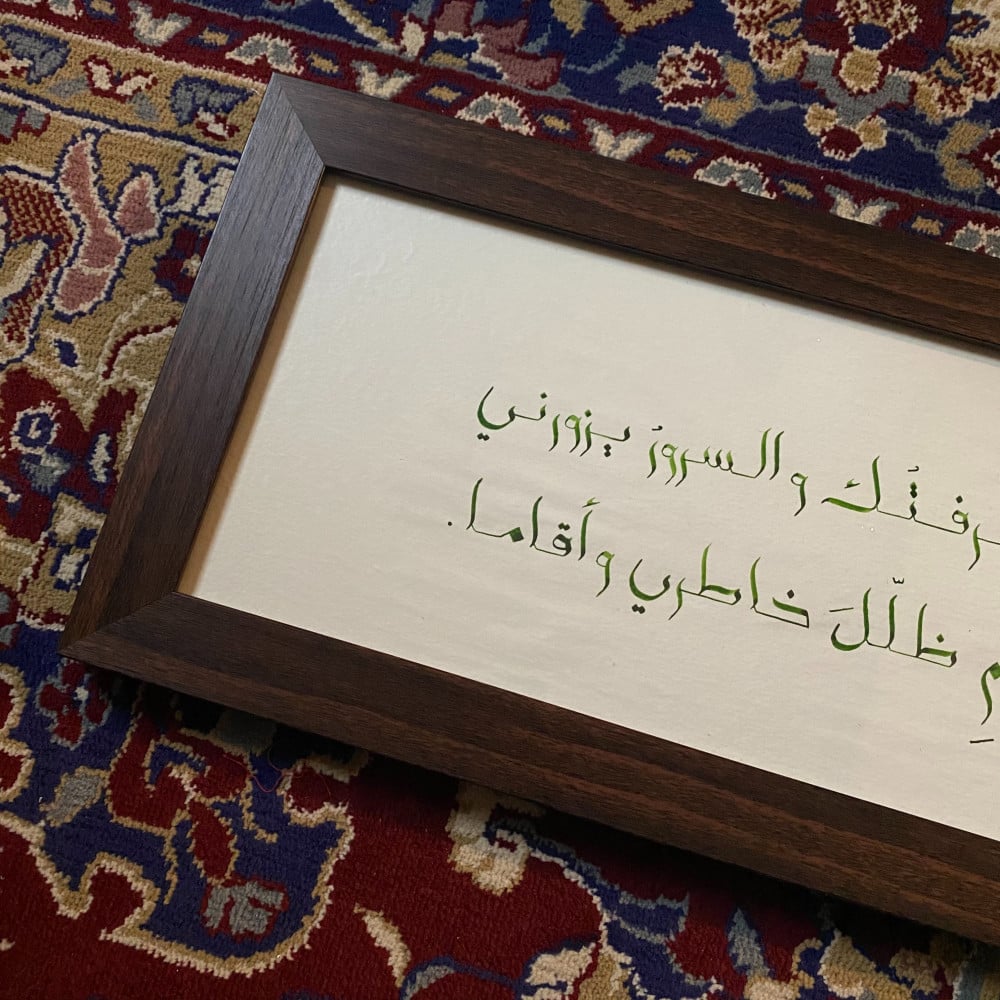 ـرفتُك والسرورُ يزورني
ـمِ ظلّلَ خاطري وأقاما.